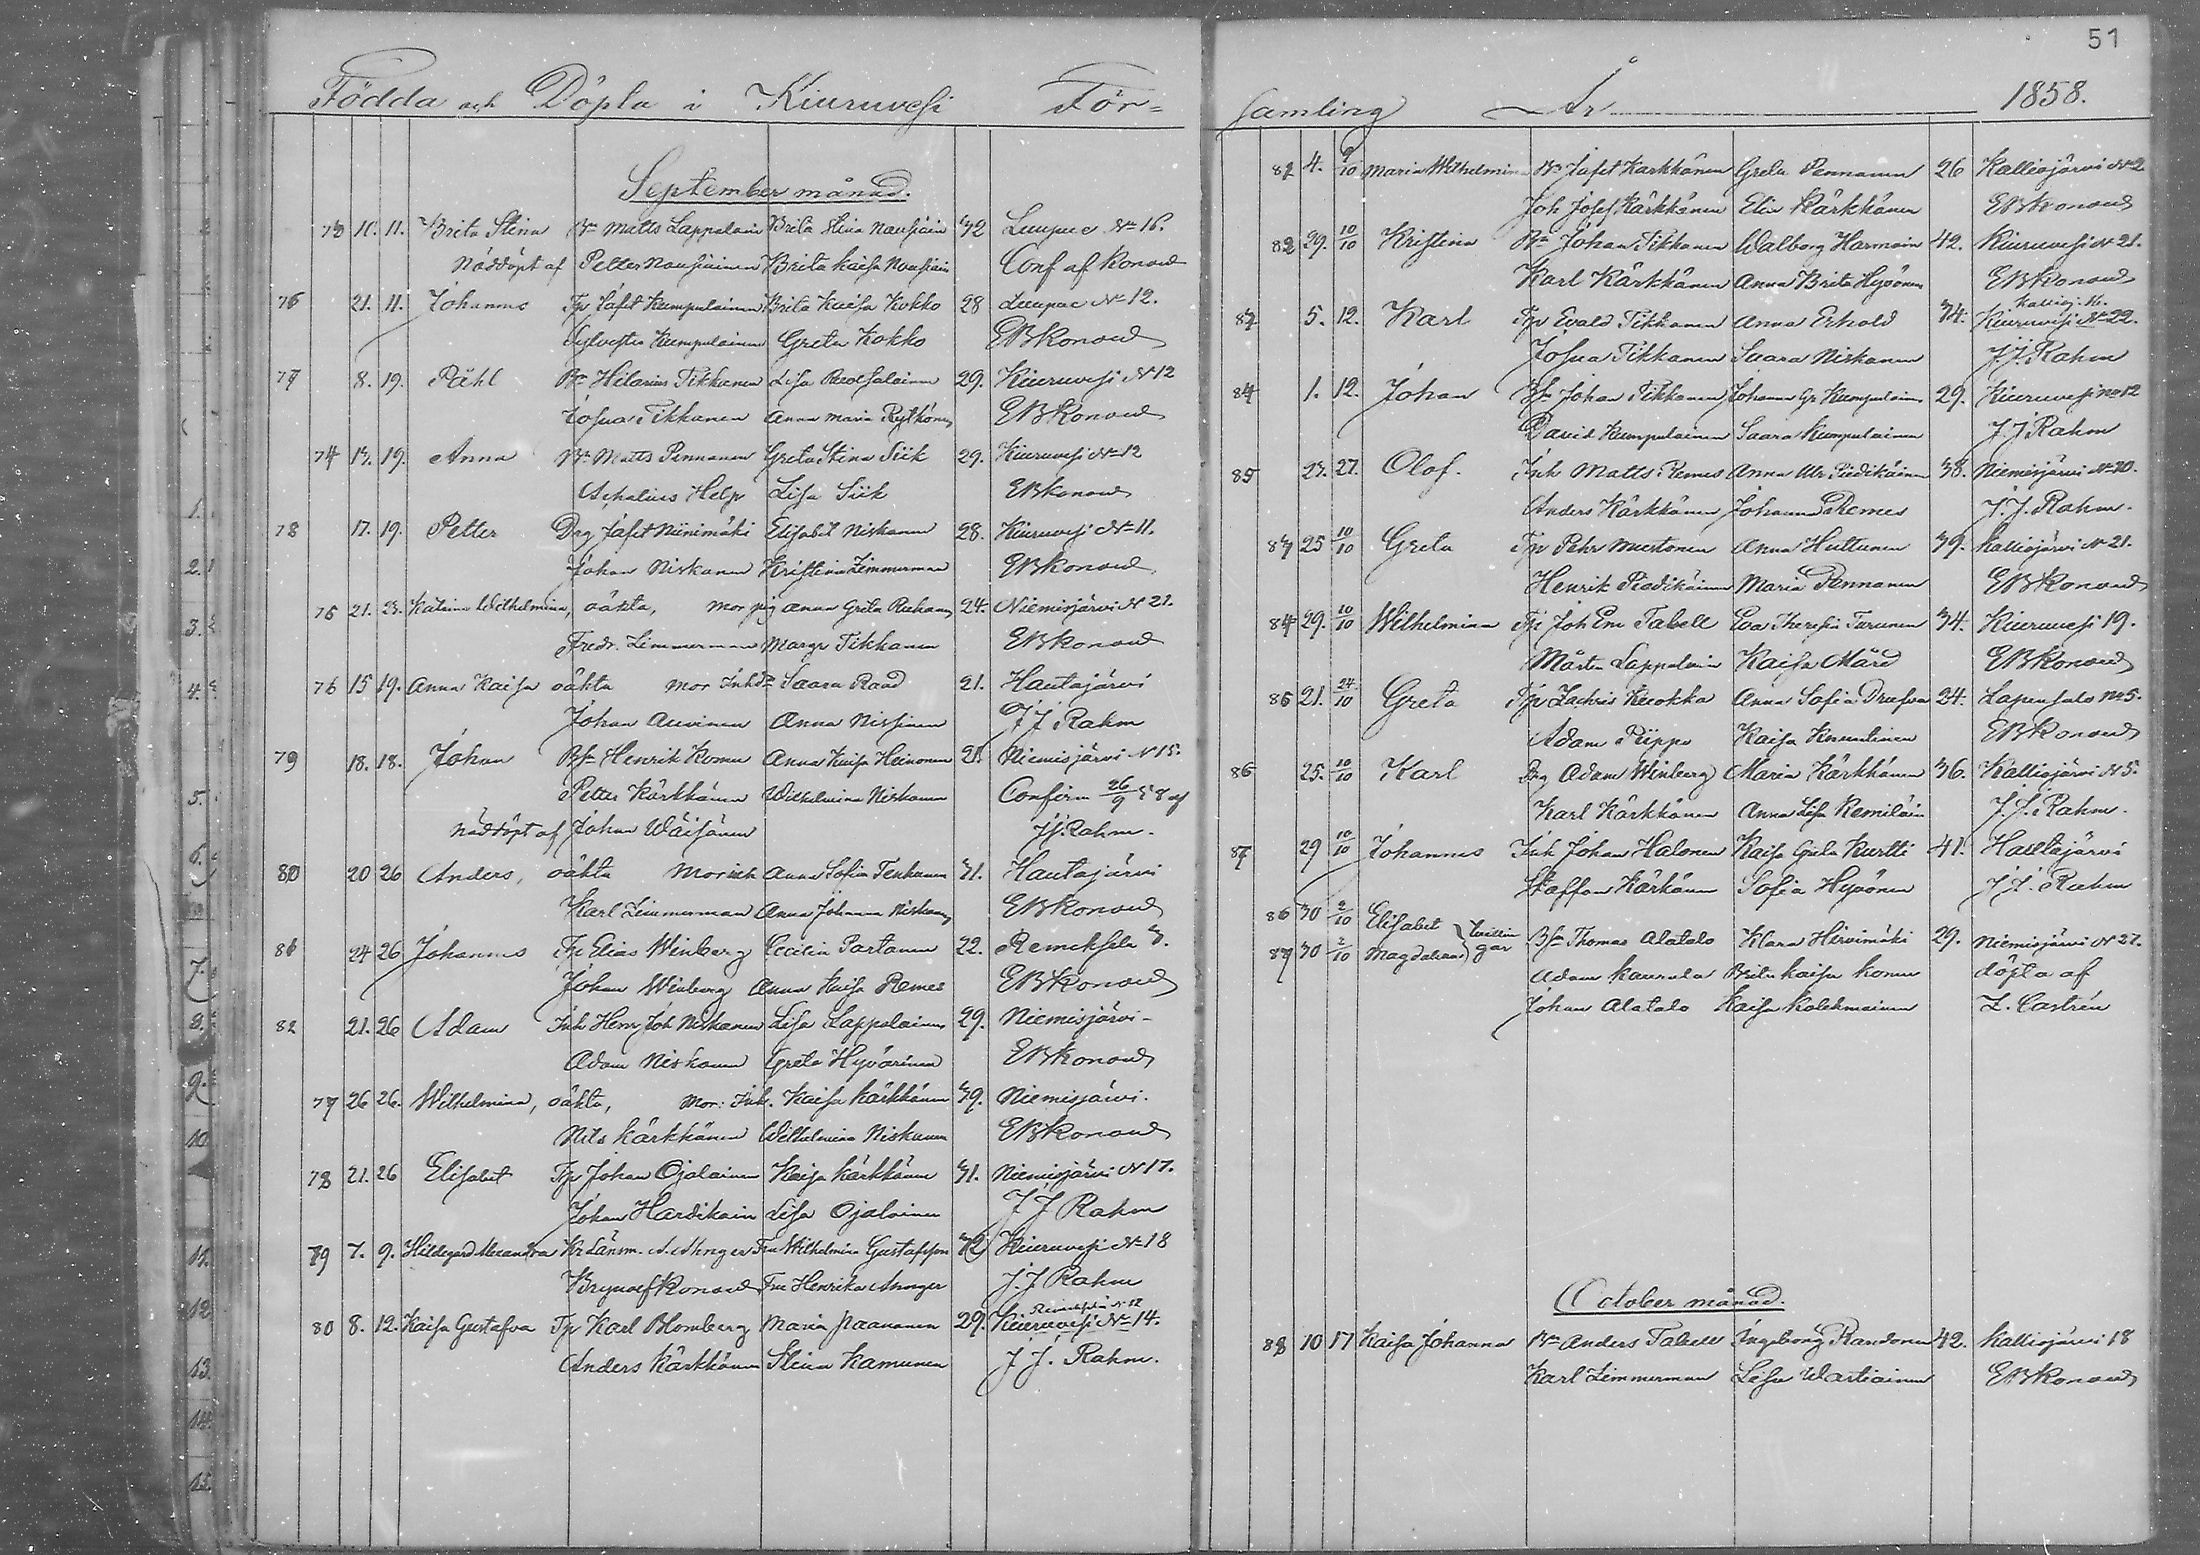 Födda och Döpta i Kiuruvesi För=
September månad.
73 10. 11. Brita Stina Bn Matts Lappalain Brita Stina Nousiain 32 Luupue No 16.
Nöddöpt af Petter Nousiainen Brita Kaisa Nousiain Conf af Konow
76 21. 11. Johannes Tp Jafet Kumpulainen Brita Kaisa Kokko 28 Luupue No 12.
Sylvester Kumpulainen Greta Kokko EBKonow
77 8. 19. Påhl Bn Hilarius Tikkanen Lisa Ruotsalainen 29. Kiuruvesi N 12
Josua Tikkanen Anna Maria Rytkönen EBKonow
74 13. 19. Anna Bn Matts Pennanen Greta Stina Siik 29. Kiuruvesi No 12
Help Lisa Siik EBKonow
78 17. 19. Petter Drg Jafet Niinimäki Elisabet Niskanen 28. Kiuruvesi No 11.
Johan Niskanen Kristina Zimmerman EBKonow
75 21. 23. Katrina Wilhelmina, oäkta, mor pig Anna Greta 24. Niemisjärvi N 21.
Fredr. Zimmerman Margr Tikkanen EBKonow
76 15 19. Anna Kaisa oäkta mor Inhdr Saara Raud 21. Hautajärvi
Johan Auvinen Anna Nissinen J J Rahm
79 18. 18. Johan Bsn Henrik Komu Anna Kaisa Heinonen 21 Niemisjärvi N 15.
Petter Kärkkäinen Wilhelmina Niskanen Confirm 26/9 58 af
Nöddöpt af Johan Wäisänen J J. Rahm.
80 20 26 Anders, oäkta Mor inh Anna Sofia Tenhunen 31. Hautajärvi
Karl Zimmerman Anna Johanna Niskanen EBKonow
81 24 26 Johannes Tp Elias Winberg Cecilia Partanen 22. Remeksela 3.
Johan Winberg Anna Kaisa Remes EBKonow
82 21. 26 Adam Inh Henr Joh Niskanen Lisa Lappalainen 29. Niemisjärvi
Adam Niskanen Greta Hyvärinen EBKonow
77 26 26. Wilhelmina, oäkta, Mor: Inh. Kaisa Kärkkäinen 39. Niemisjärvi.
Nils Kärkkäinen Wilhelmina Niskanen EBKonow
78 21. 26 Elisabet Tp Johan Ojalainen Kaisa Kärkkäinen 31. Niemisjärvi N 17.
Johan Hardikain Lisa Ojalainen J J Rahm
79 7. 9. Hildegard Alexandra Kr Länsm. A. Fru Wilhelmina Gustafsson 32 Kiuruvesi No 18
Brynolf Konow Fru Henrika J. J Rahm
Remeksela N 12
80 8. 12. Kaisa Gustafva Tp Karl Blomberg Maria Paananen 29. Kiuruvesi No 14.
Anders Kärkkäinen Stina Kamunen J J. Rahm.
51
samling År 1858.
81 4. 9/10 Maria Wilhelmina Bn Jafet Karkkänen Greta Pennanen 26 Kalliojärvi No 2
Joh Josef Kärkkänen Elin Kärkkänen EBKonow
82 29. 10/10 Kristina Bn Johan Tikkanen Walborg Harmoin 42. Kiuruvesi N 21.
Karl Kärkkänen Anna Brita Hyvönen EBKonow
Kallioj. 16.
83 5. 12. Karl Tp Evald Tikkanen Anna Erhold 34. Kiuruvesi No 22.
Josua Tikkanen Saara Niskanen J J. Rahm
84 1. 12. Johan Bsn Johan Tikkanen Johanna Gr Kumpulainen 29. Kiuruvesi No 12
David Kumpulainen Saara Kumpulainen J. J Rahm
85 23. 27. Olof. Inh Matts Remes Anna Ulr Piedikäinen 38. Niemisjärvi No 20.
Anders Kärkkänen Johanna Remes J. J. Rahm.
83 25 10/10 Greta Tp Pehr Mustonen Anna Huttunen 39. Kalliojärvi N 21.
Henrik Piedikäinen Maria Pennanen EBKonow
84 29. 10/10 Wilhelmina Tp Joh Em Tabell Eva Theresia Turunen 34. Kiuruvesi 19.
Mårten Lappalain Kaisa Mård EBKonow
85 21. 24/10 Greta Tp Zachris Kuokka Anna Sofia Drufva 24. Lapinsalo No 5.
Adam Piippo Kaisa Knuutinen EBKonow
86 25. 10/10 Karl Drg Adam Winberg Maria Kärkkänen 36. Kalliojärvi N 5.
Karl Kärkkänen Anna Lisa Remiläin J. J. Rahm.
87 29 10/10 Johannes Inh Johan Halonen Kaisa Greta Kurtti 41. Hautajärvi
Staffan Kärkänen Sofia Hyvönen J J. Rahm
86 30 2/10 Elisabet } Tvillin
87 30 2/10 Magdalena } gar Bsn Thomas Alatalo Klara Hirvimäki 29. Niemisjärvi N 27.
Adam Kaurala Brita Kaisa Komu döpta af
Johan Alatalo Kaisa Kolehmainen Z. Castrén
October månad.
88 10 17 Kaisa Johanna Bn Anders Tabell Ingeborg Randonen 42. Kalliojärvi 18
Karl Zimmerman Lisa Wartiainen EBKonow